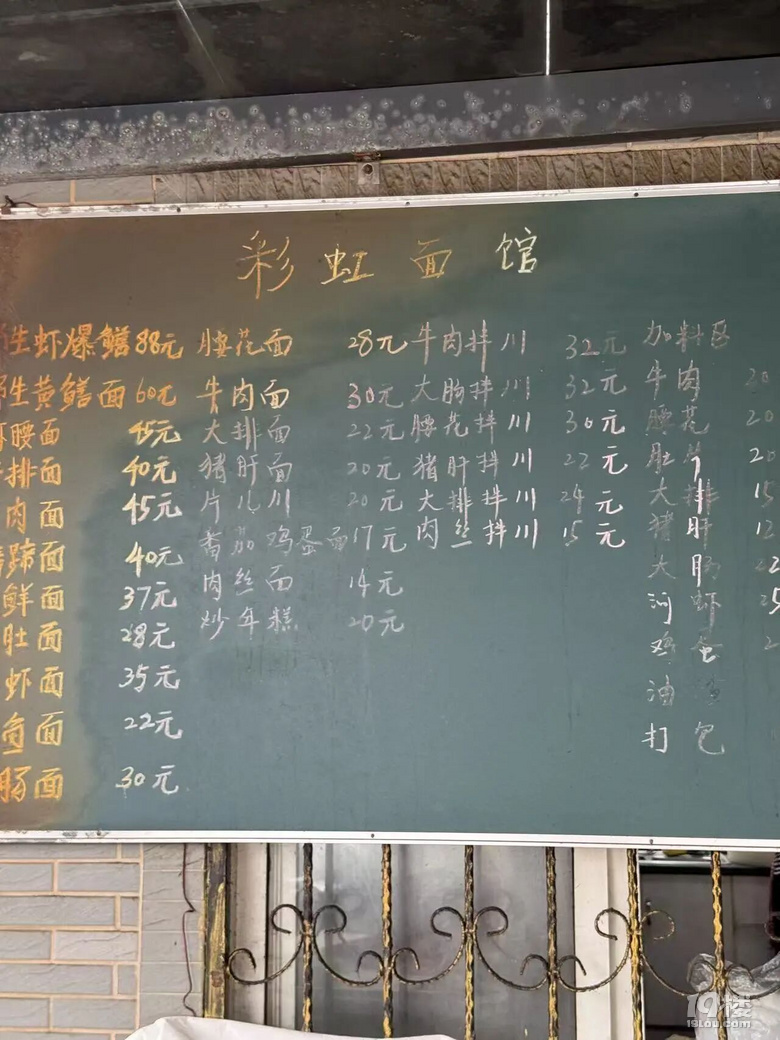 彩虹面馆
生虾爆鳝88元
生黄鳝面60元
腰面 45元
排面 40元
肉面 45元
蹄面 40元
鲜面 37元
肚面 28元
虾面 35元
鱼面 22元
肠面 30元
腰花面 28元
牛肉面 30元
大排面 22元
猪肝面 20元
片儿川 20元
番茄鸡蛋面17元
肉丝面 14元
炒年糕 20元
牛肉拌川 32元
大肠拌川 32元
腰花拌川 30元
猪肝拌川 22元
大排拌川 24元
肉丝拌川 15元
加料区
牛肉 20
腰花 20
肚片 20
大排 15
猪肝 12
大肠 22
河虾 25
鸡蛋 2
油渣
打包
19楼
19lou.com